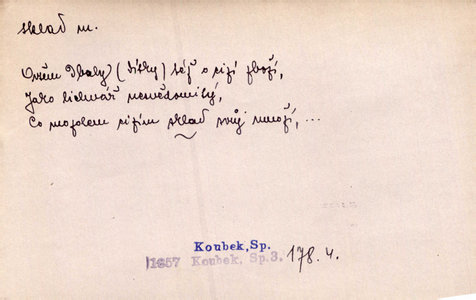 sklad m.
Ovšem Dbalý (dítky) též o cizí zboží,
Jako lichvář nesvědomitý,
Co mozolem cizím sklad svůj množí, ...
Koubek, Sp.
1857 Koubek, Sp.3, 178.4.